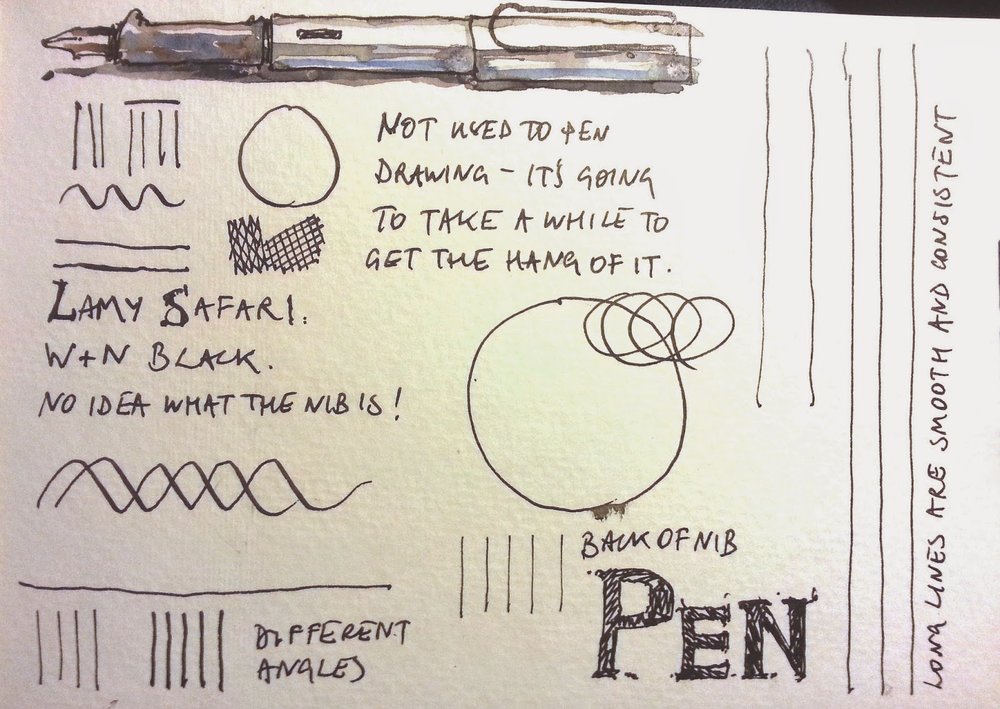 NOT USED TO PEN
DRAWING - IT'S GOING
TO TAKE A WHILE TO
GET THE HANG OF IT.
LAMY SAFARI.
W+N BLACK.
NO IDEA WHAT THE NIB IS!
BACK OF NIB
PEN
DIFFERENT
ANGLES
LONG LINES ARE SMOOTH AND CONSISTENT